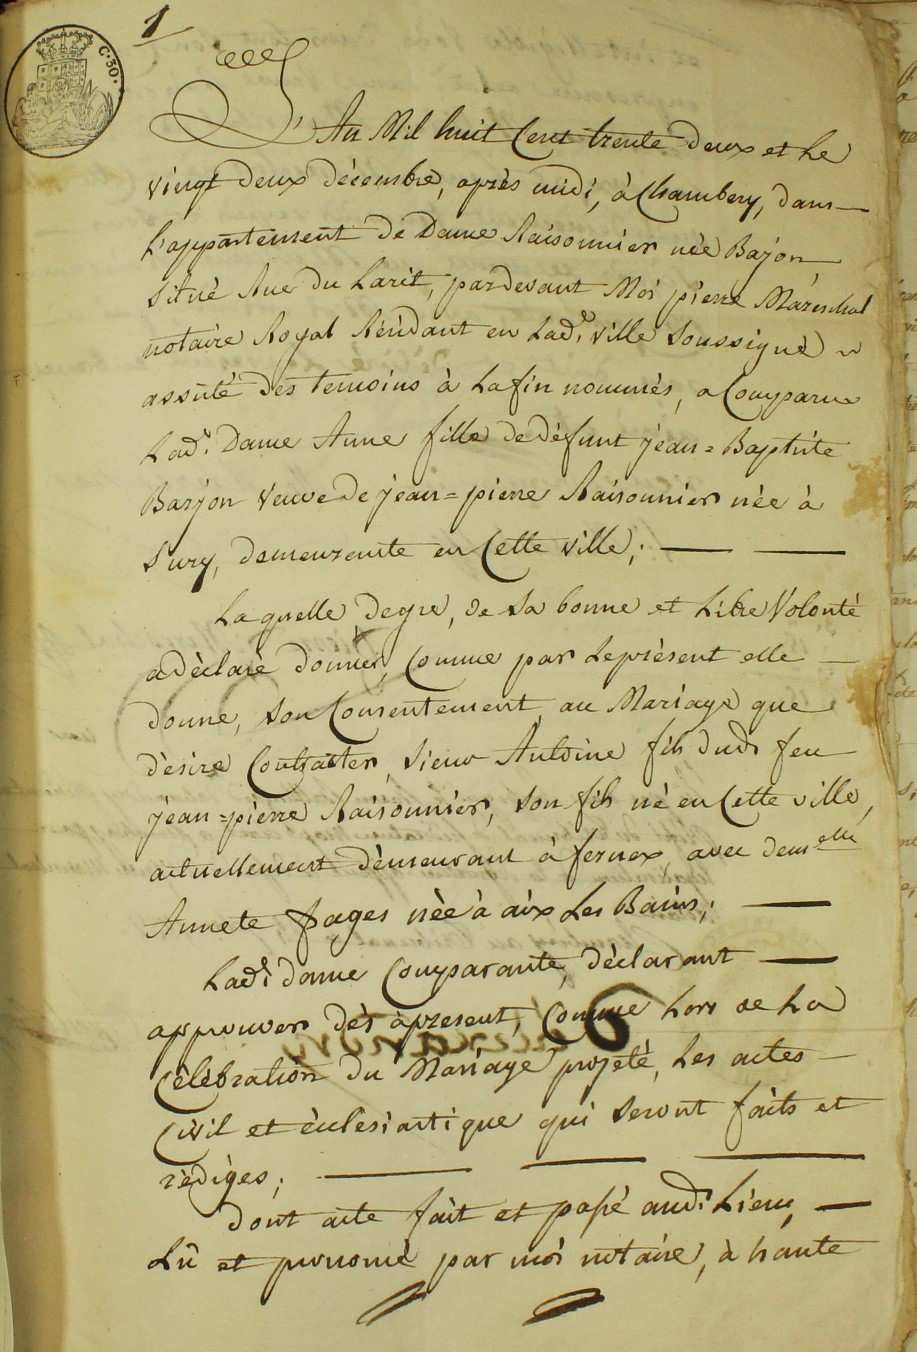 1
C. 30.
L'An Mil huit Cent trente deux et Le
vingt deux décembre, après midi, à Chambery, dans
L'appartement de Dame Raisonnier née Barjon
situé Rue du Larit, pardevant Moi pierre Màreschal
notaire Royal Résidant en Lad.e ville soussigné
assisté des temoins à Lafin nommés, a Comparu
Lad.e Dame Anne fille de défunt jean=Baptiste
Barjon veuve de jean=pierre Raisonnier née à
Sury, demeurante en Cette ville;
Laquelle, degré, de sa bonne et Libre Volonté
adèclaré donner, Comme par Leprésent elle
donne, son Consentement au Mariage que
dèsire Contracter, sieur Antoine fils dudt feu
jean=pierre Raisonnier, son fils né en Cette ville,
actuellement dèmeurant à fernex, avec demelle
Annete fages née à aix Les Bains;
Lad.e dame Comparante, dèclarant
approuver dès àpresent, Comme Lors de La
Cèlèbration du Mariage projeté, Les actes
Civil et èclèsiastique qui seront faits et
rèdigès;
dont acte fait et passé audt Lieu,
Lû et prononcé par moi notaire, à haute